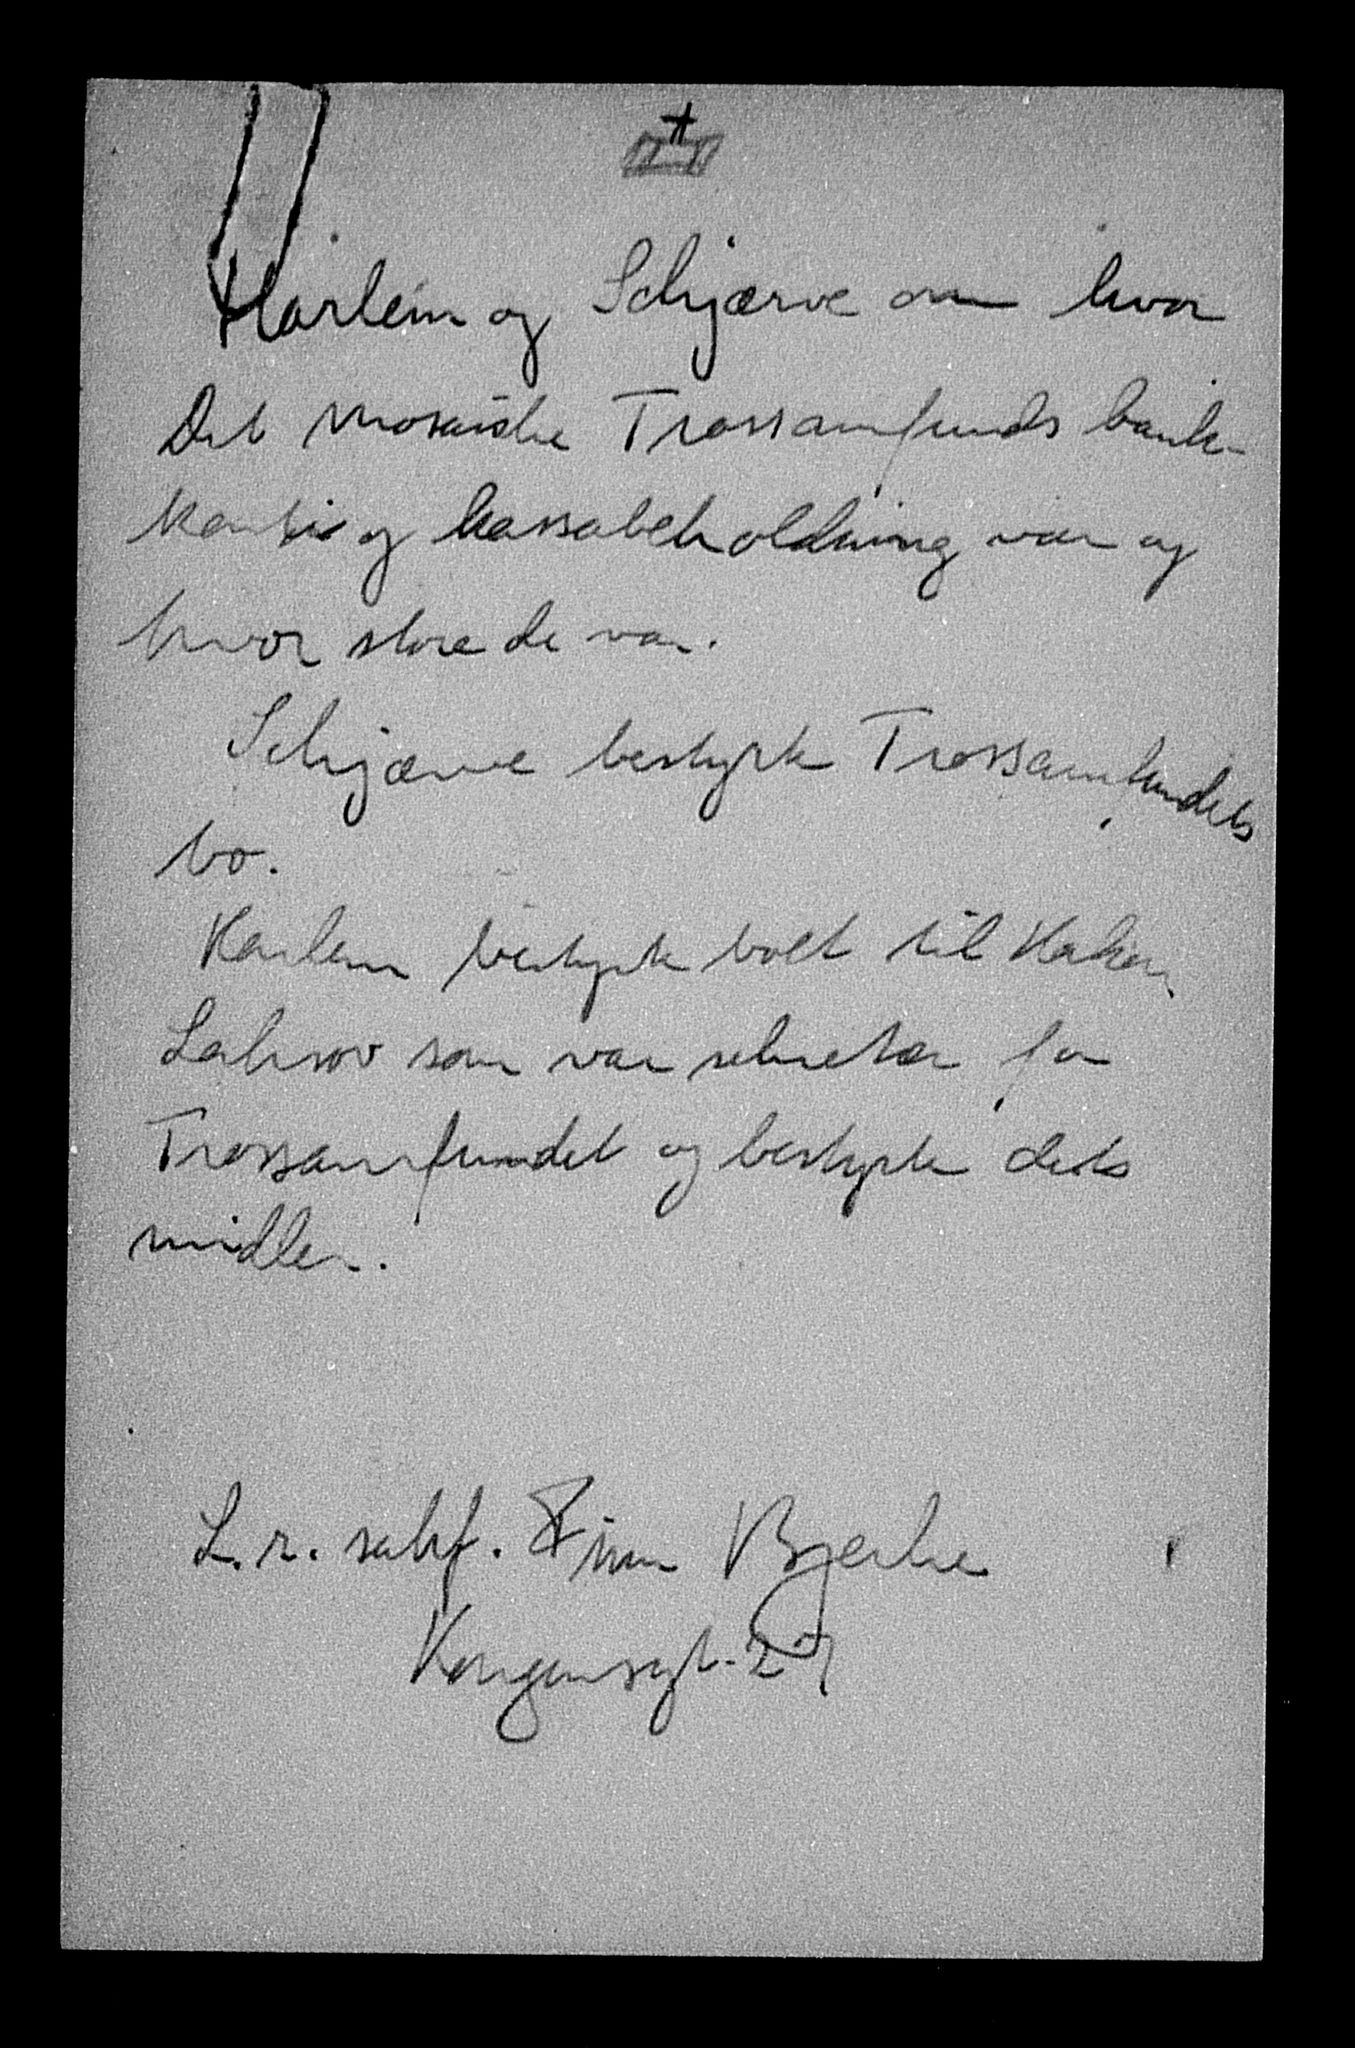 Harlem og Schjærve om hvor
Det mosaiske Trossamfunds bank-
konti og kassabeholdning var og
hvor store de var.
Schjærve bestyrte Trossamfundets
bo.
Harlem bestyrte boet til Hakon
Laksov som var sekretær for
Trossamfundet og bestyrte dets
midler.
L.r. sakf. Finn Bjerke
Kongensgt. 27